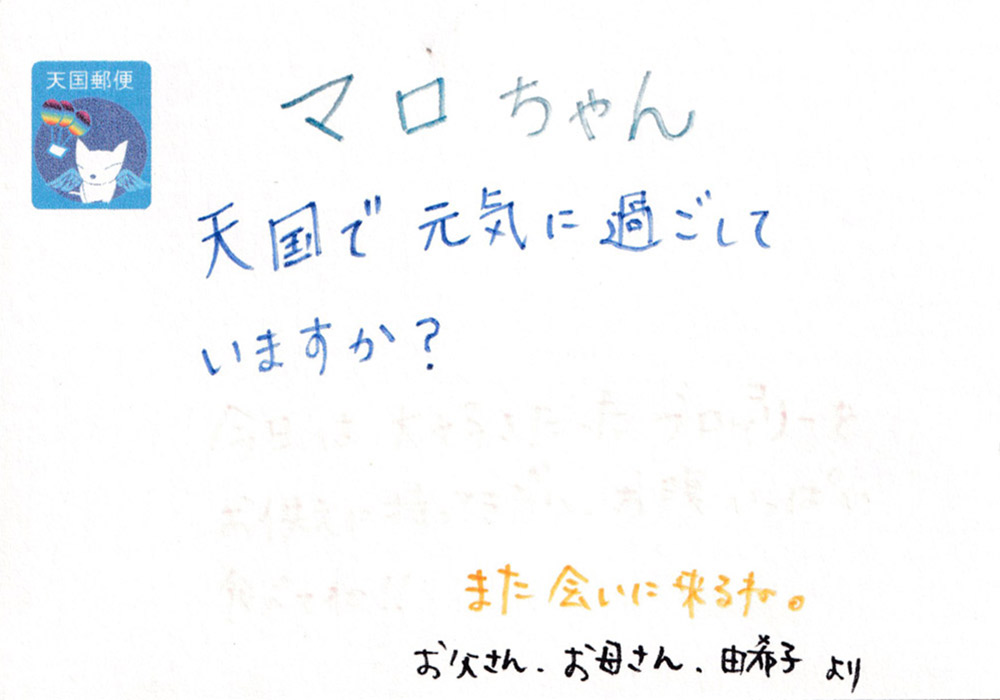 天国郵便
マロちゃん
天国で元気に過ごして
いますか？
また会いに来るね。
お父さん、お母さん、由希子より